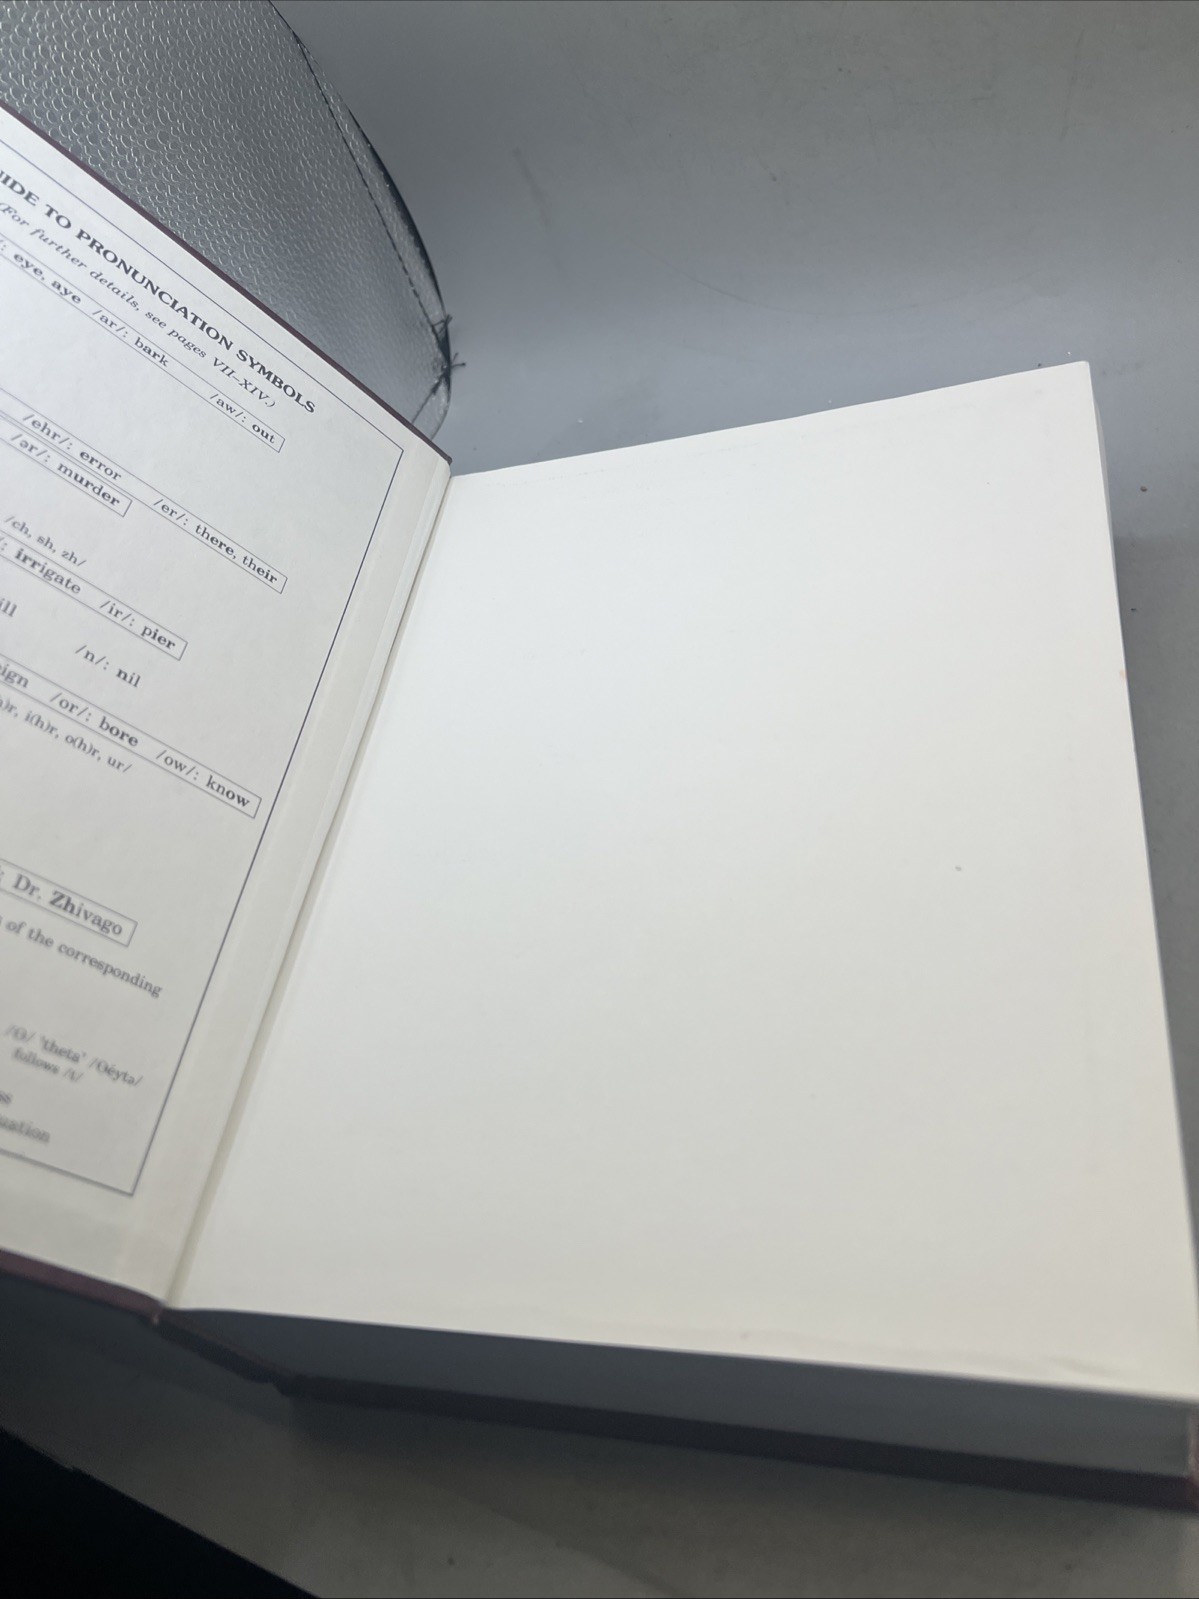 IDE TO PRONUNCIATION SYMBOLS
(For further details, see pages VII–XIV.)
/: eye, aye /ar/: bark /aw/: out
/ehr/: error /er/: there, their
/ər/: murder
/ch, sh, zh/
/: irrigate /ir/: pier
ill /n/: nil
eign /or/: bore /ow/: know
h)r, i(h)r, o(h)r, ur/
: Dr. Zhivago
of the corresponding
/Θ/ 'theta' /Θéytə/
follows /t/
uation